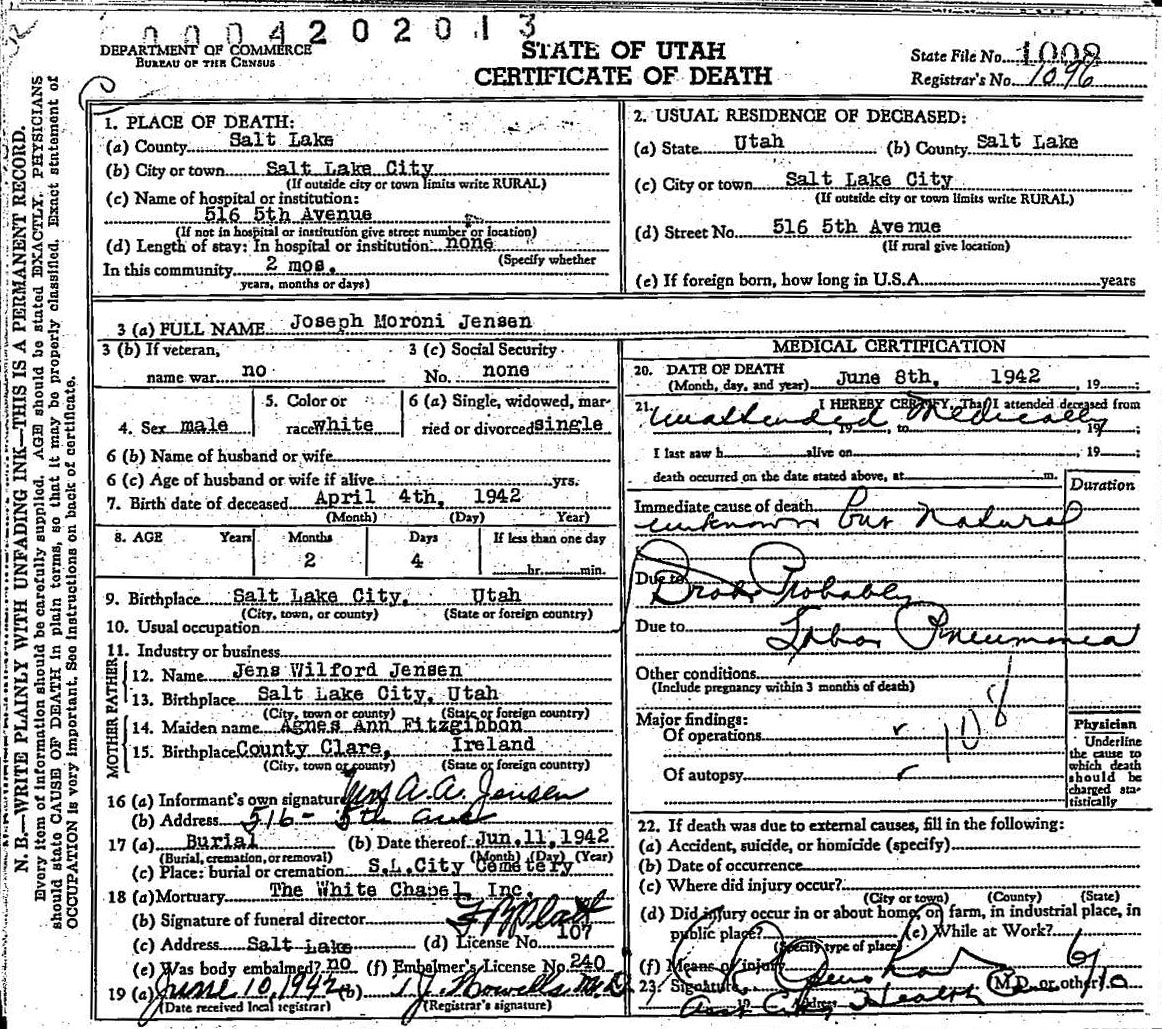 0004202013
DEPARTMENT OF COMMERCE
BUREAU OF THE CENSUS
STATE OF UTAH
CERTIFICATE OF DEATH
State File No. 1008
Registrar's No. 1096
N. B.—WRITE PLAINLY WITH UNFADING INK—THIS IS A PERMANENT RECORD.
Every item of information should be carefully supplied. AGE should be stated EXACTLY. PHYSICIANS
should state CAUSE OF DEATH in plain terms, so that it may be properly classified. Exact statement of
OCCUPATION is very important. See instructions on back of certificate.
1. PLACE OF DEATH:
(a) County Salt Lake
(b) City or town Salt Lake City
(If outside city or town limits write RURAL)
(c) Name of hospital or institution:
516 5th Avenue
(If not in hospital or institution give street number or location)
(d) Length of stay: In hospital or institution none
(Specify whether
In this community 2 mos.
years, months or days)
2. USUAL RESIDENCE OF DECEASED:
(a) State Utah (b) County Salt Lake
(c) City or town Salt Lake City
(If outside city or town limits write RURAL)
(d) Street No. 516 5th Avenue
(If rural give location)
(e) If foreign born, how long in U.S.A. years
3 (a) FULL NAME Joseph Moroni Jensen
3 (b) If veteran,
name war no
3 (c) Social Security
No. none
4. Sex male
5. Color or
race white
6 (a) Single, widowed, mar-
ried or divorced single
6 (b) Name of husband or wife
6 (c) Age of husband or wife if alive yrs.
7. Birth date of deceased April 4th, 1942
(Month) (Day) Year)
8. AGE Years Months Days If less than one day
2 4 hr. min.
9. Birthplace Salt Lake City, Utah
(City, town, or county) (State or foreign country)
10. Usual occupation
11. Industry or business
FATHER
12. Name Jens Wilford Jensen
13. Birthplace Salt Lake City, Utah
(City, town or county) (State or foreign country)
MOTHER
14. Maiden name Agnes Ann Fitzgibbon
15. Birthplace County Clare, Ireland
(City, town or county) (State or foreign country)
16 (a) Informant's own signature Mrs A. A. Jensen
(b) Address 516 - 5th Ave
17 (a) Burial (b) Date thereof Jun. 11, 1942
(Burial, cremation, or removal) (Month) (Day) (Year)
(c) Place: burial or cremation S.L. City Cemetery
18 (a) Mortuary The White Chapel Inc.
(b) Signature of funeral director
107
(c) Address Salt Lake (d) License No.
(e) Was body embalmed? no (f) Embalmer's License No. 240
19 (a) June 10, 1942 (b) T. J. Howells M.D.
(Date received local registrar) (Registrar's signature)
MEDICAL CERTIFICATION
20. DATE OF DEATH
(Month, day, and year) June 8th, 1942, 19 ;
21. I HEREBY CERTIFY, That I attended deceased from
unattended Medically
, 19 , to , 19 ;
I last saw h alive on , 19 ;
death occurred on the date stated above, at m.
Duration
Immediate cause of death
unknown but Natural
Due to
Probably
Due to Lobar Pneumonia
Other conditions
(Include pregnancy within 3 months of death)
108
Major findings:
Of operations
Of autopsy
Physician
Underline
the cause to
which death
should be
charged sta-
tistically
22. If death was due to external causes, fill in the following:
(a) Accident, suicide, or homicide (specify)
(b) Date of occurrence
(c) Where did injury occur?
(City or town) (County) (State)
(d) Did injury occur in or about home, on farm, in industrial place, in
public place? (e) While at Work?
(Specify type of place)
(f) Means of injury
23. Signature (M.D. or other) 6/10
Asst City Health
Address